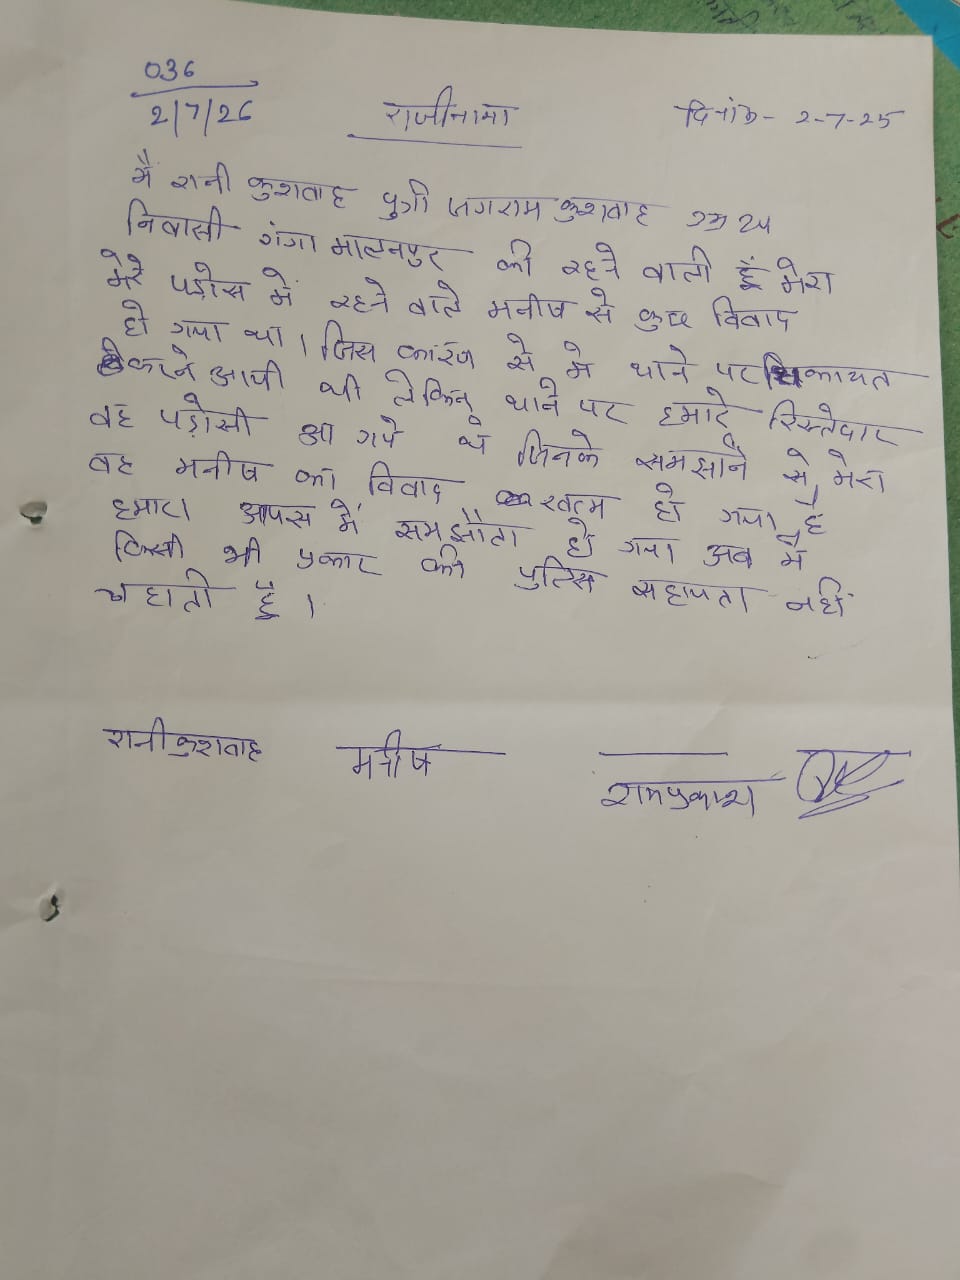 036
2/7/26
राजीनामा
दिनांक- 2-7-25
मैं रानी कुशवाह पुत्री जगराम कुशवाह उम्र 24
निवासी गंगा मालनपुर की रहने वाली हूँ मेरा
मेरे पड़ोस में रहने वाले मनीष से कुछ विवाद
हो गया था। जिस कारण से मे थाने पर शिकायत
करने आयी थी लेकिन थाने पर हमारे रिस्तेदार
वह पड़ोसी आ गये थे जिनके समझाने से मेरा
वह मनीष का विवाद खत्म हो गया है
हमारा आपस में समझौता हो गया अब मैं
किसी भी प्रकार की पुलिस सहायता नहीं
चहाती हूँ।
रानी कुशवाह
मनीष
रामप्रकाश